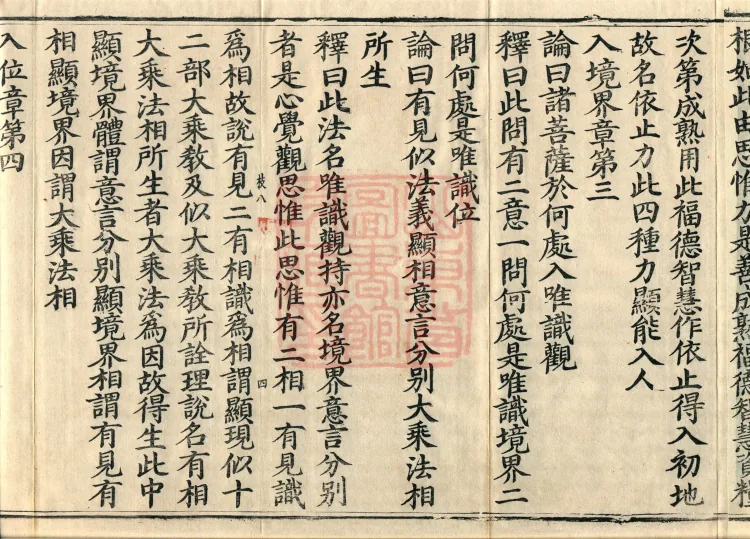 根如此由思惟力是善成熟福德智慧資糧
次第成熟用此福德智慧作依止得入初地
故名依止力此四種力顯能入人
入境界章第三
論曰諸菩薩於何處入唯識觀
釋曰此問有二意一問何處是唯識境界二
問何處是唯識位
論曰有見似法義顯相意言分别大乘法相
所生
釋曰此法名唯識觀持亦名境界意言分别
者是心覺觀思惟此思惟有二相一有見識
枝八
四
爲相故說有見二有相識爲相謂顯現似十
二部大乘教及似大乘教所詮理說名有相
大乘法相所生者大乘法爲因故得生此中
顯境界體謂意言分别顯境界相謂有見有
相顯境界因謂大乘法相
入位章第四